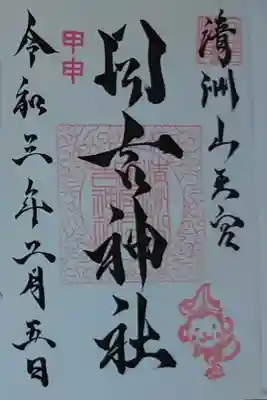 清洲山王宮
日吉神社
甲申
令和三年二月五日